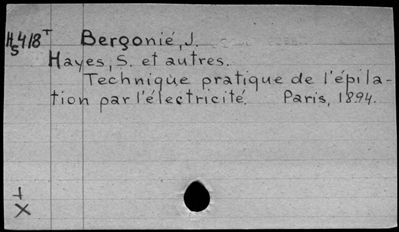 H5418T Bergonié, J.
Hayes, S. et autres.
Technique pratique de l'épila-
tion par l'électricité. Paris, 1894.
1
X